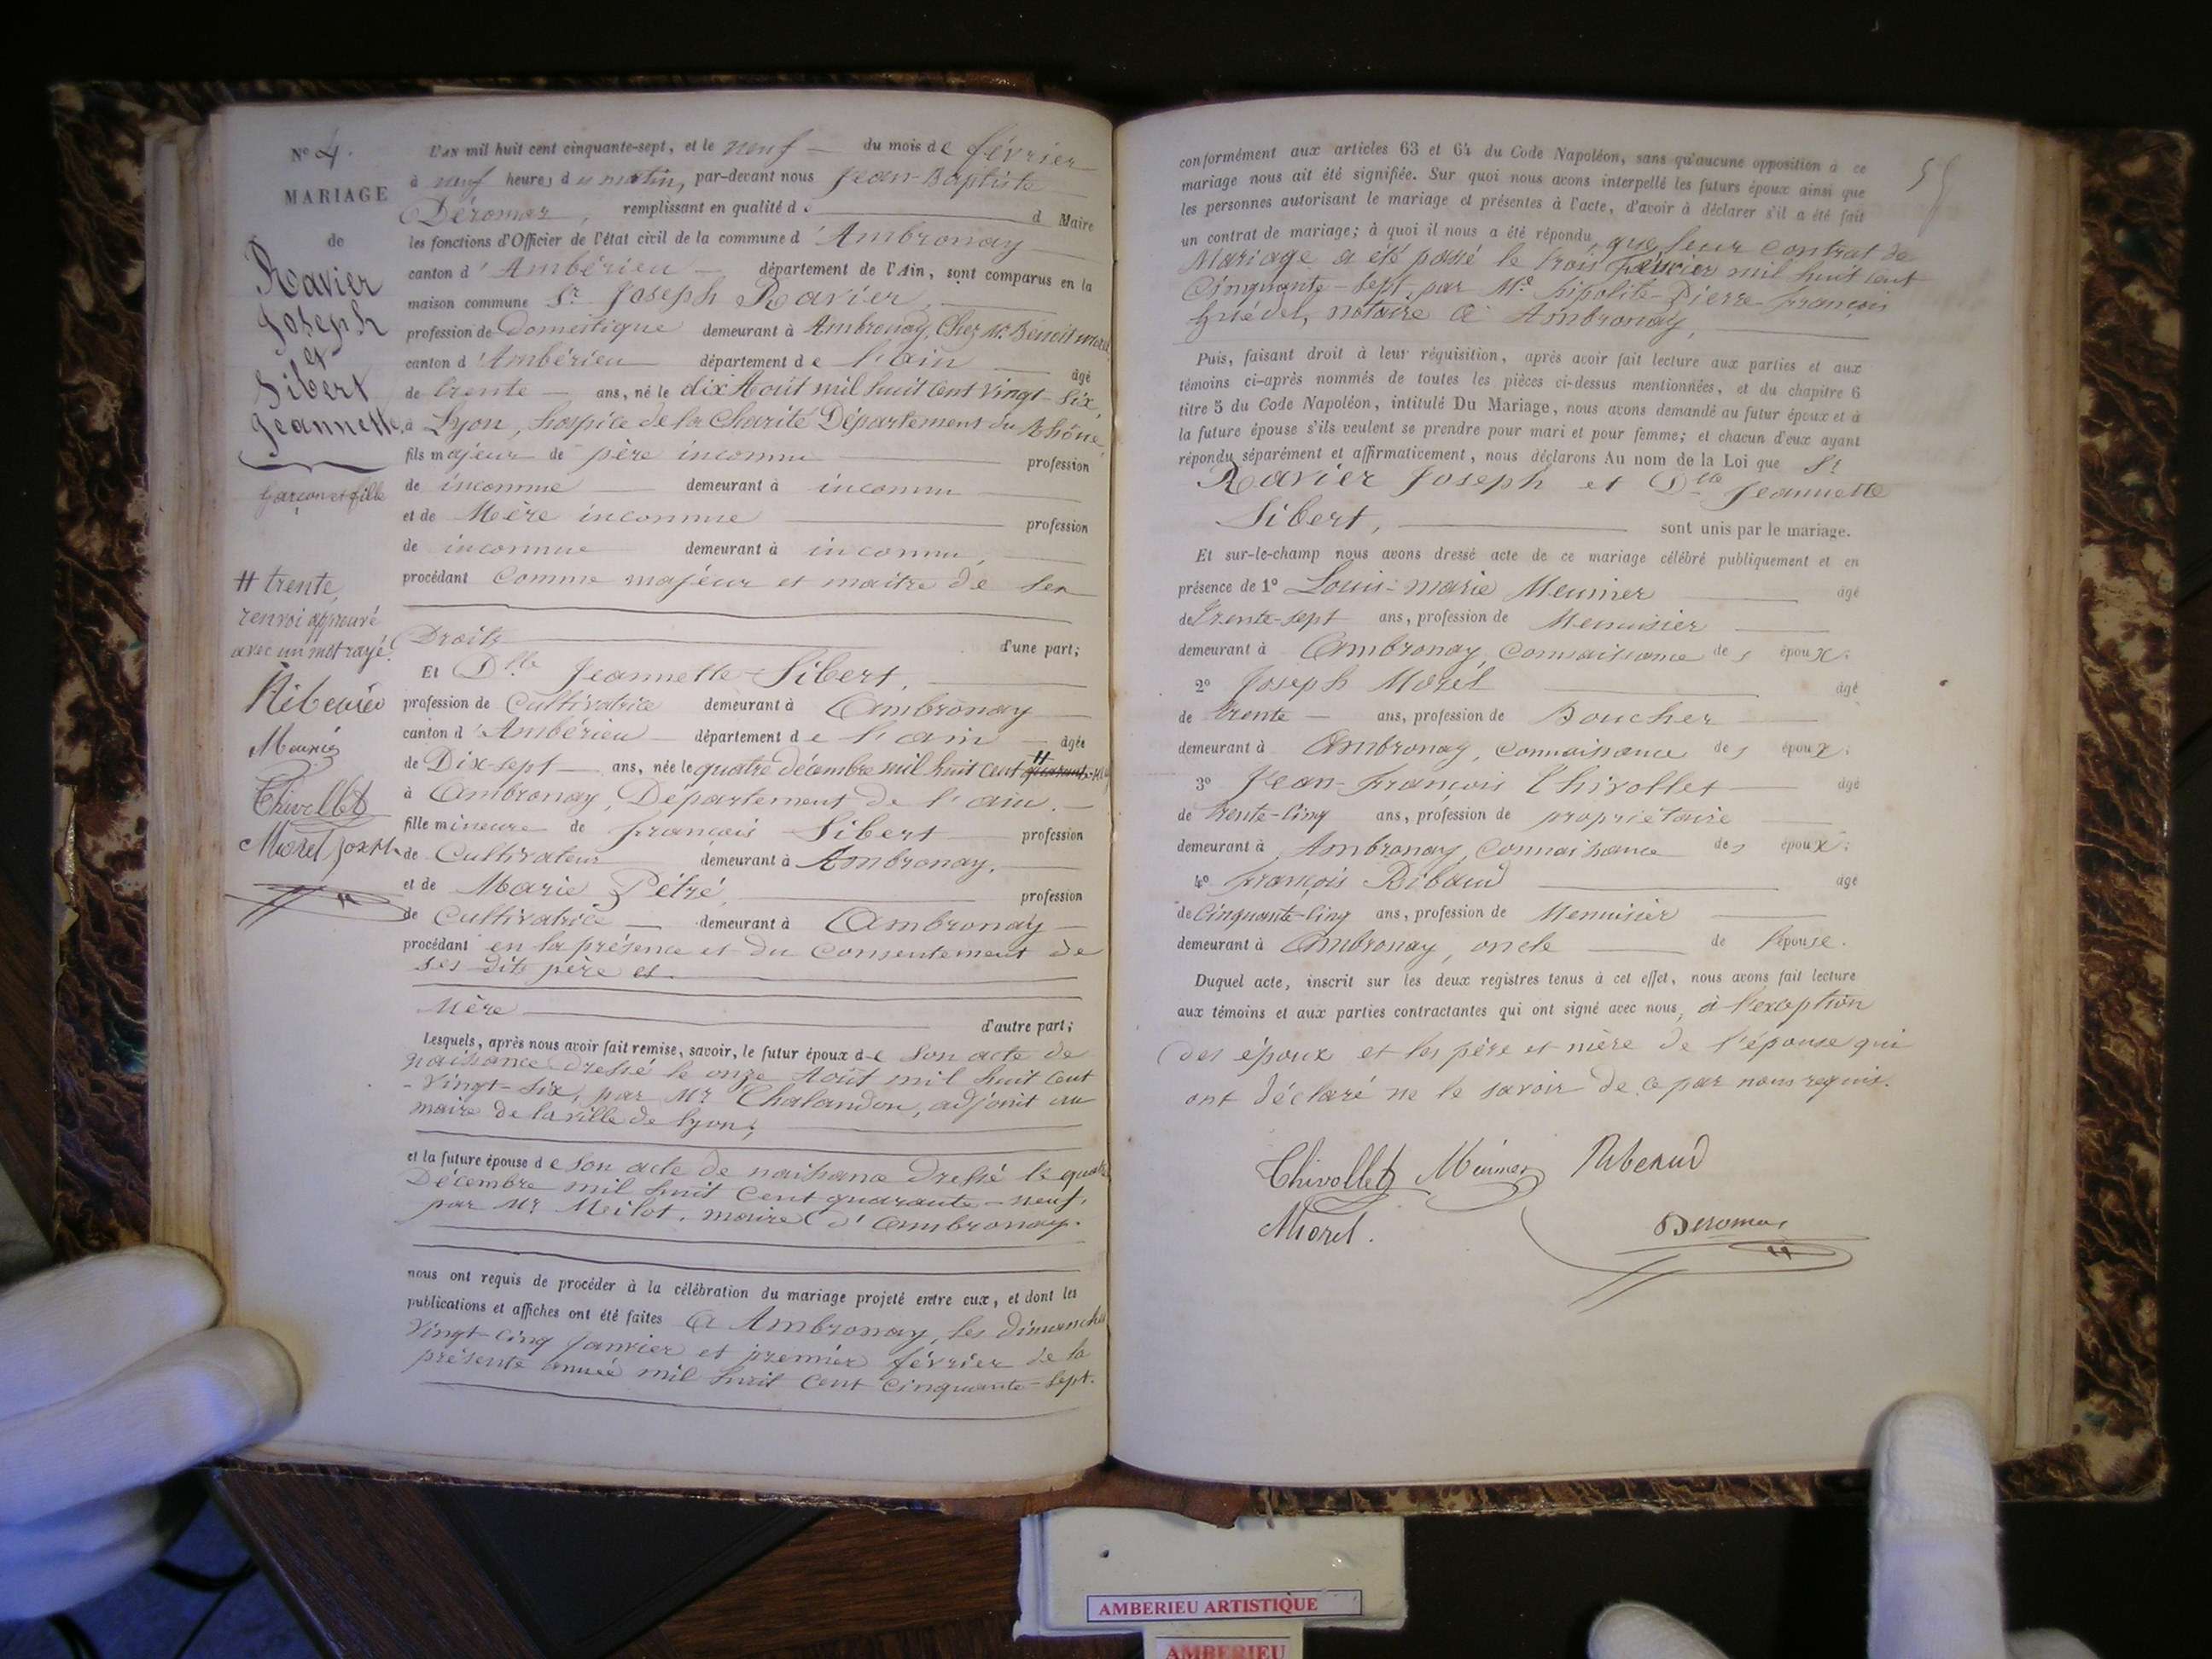 N° 4.
MARIAGE
de
Ravier
Joseph
et
Sibert
Jeannette
garçon et fille
# trente,
renvoi approuvé
avec un mot rayé.
Meunier
Thivollet
Morel Joseph
L'AN mil huit cent cinquante-sept, et le neuf du mois de février
à neuf heures du matin, par-devant nous Jean-Baptiste
Déromas, remplissant en qualité d d Maire
les fonctions d'Officier de l'état civil de la commune d'Ambronay
canton d'Ambérieu département de l'Ain, sont comparus en la
maison commune Sr Joseph Ravier,
profession de Domestique demeurant à Ambronay, Chez Mr. Benoit
canton d'Ambérieu département de l'ain âgé
de trente ans, né le dix Août mil huit cent vingt-six,
à Lyon, hospice de la Charité Département du Rhône,
fils majeur de père inconnu profession
de inconnue demeurant à inconnu
et de Mère inconnue profession
de inconnue demeurant à inconnu,
procédant comme majeur et maitre de ses
Droits d'une part;
Et Dlle Jeannette Sibert,
profession de Cultivatrice demeurant à Ambronay
canton d'Ambérieu département de l'ain âgée
de Dix-sept ans, née le quatre décembre mil huit cent #
à Ambronay, Département de l'ain.
fille mineure de françois Sibert profession
de Cultivateur demeurant à Ambronay,
et de Marie Pétré, profession
de Cultivatrice demeurant à Ambronay
procédant en la présence et du consentement de
ses dits père et
Mère d'autre part;
Lesquels, après nous avoir fait remise, savoir, le futur époux de son acte de
naissance dressé le onze Août mil huit cent
-vingt-six, par Mr Chalandon, adjoint au
maire de la ville de lyon;
et la future épouse de son acte de naissance dressé le quatre
Décembre mil huit cent quarante-neuf,
par Mr Meilot, maire d'Ambronay.
nous ont requis de procéder à la célébration du mariage projeté entre eux, et dont les
publications et affiches ont été faites à Ambronay, les dimanches
vingt-cinq janvier et premier février de la
présente année mil huit cent cinquante-sept.
55
conformément aux articles 63 et 64 du Code Napoléon, sans qu'aucune opposition à ce
mariage nous ait été signifiée. Sur quoi nous avons interpellé les futurs époux ainsi que
les personnes autorisant le mariage et présentes à l'acte, d'avoir à déclarer s'il a été fait
un contrat de mariage; à quoi il nous a été répondu, que leur contrat de
Mariage a été passé le trois février mil huit cent
Cinquante-sept, par Me hipolite-Pierre-françois
notaire à Ambronay,
Puis, faisant droit à leur réquisition, après avoir fait lecture aux parties et aux
témoins ci-après nommés de toutes les pièces ci-dessus mentionnées, et du chapitre 6
titre 5 du Code Napoléon, intitulé Du Mariage, nous avons demandé au futur époux et à
la future épouse s'ils veulent se prendre pour mari et pour femme; et chacun d'eux ayant
répondu séparément et affirmativement, nous déclarons Au nom de la Loi que Sr
Ravier Joseph et Dlle Jeannette
Sibert, sont unis par le mariage.
Et sur-le-champ nous avons dressé acte de ce mariage célébré publiquement et en
présence de 1° Louis-marie Meunier âgé
de trente-sept ans, profession de Menuisier
demeurant à Ambronay, connaissance des époux;
2° Joseph Morel âgé
de trente ans, profession de Boucher
demeurant à Ambronay, connaissance des époux;
3° Jean-françois Thivollet âgé
de trente-cinq ans, profession de propriétaire
demeurant à Ambronay, connaissance des époux;
4° françois Ribaud âgé
de Cinquante-cinq ans, profession de Menuisier
demeurant à Ambronay, oncle de l'épouse.
Duquel acte, inscrit sur les deux registres tenus à cet effet, nous avons fait lecture
aux témoins et aux parties contractantes qui ont signé avec nous, à l'exception
des époux et les père et mère de l'épouse qui
ont déclaré ne le savoir de ce par nous requis.
Thivollet Meunier Ribeaud
Morel. Deromas
AMBERIEU ARTISTIQUE
AMBERIEU